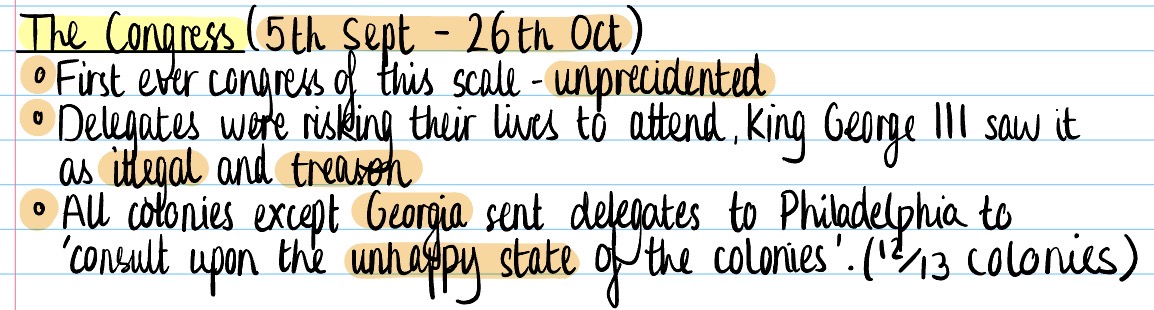 The Congress (5th Sept - 26th Oct)
° First ever congress of this scale - unprecidented
° Delegates were risking their lives to attend, King George III saw it
as illegal and treason
° All colonies except Georgia sent delegates to Philadelphia to
'consult upon the unhappy state of the colonies'. (12/13 colonies)